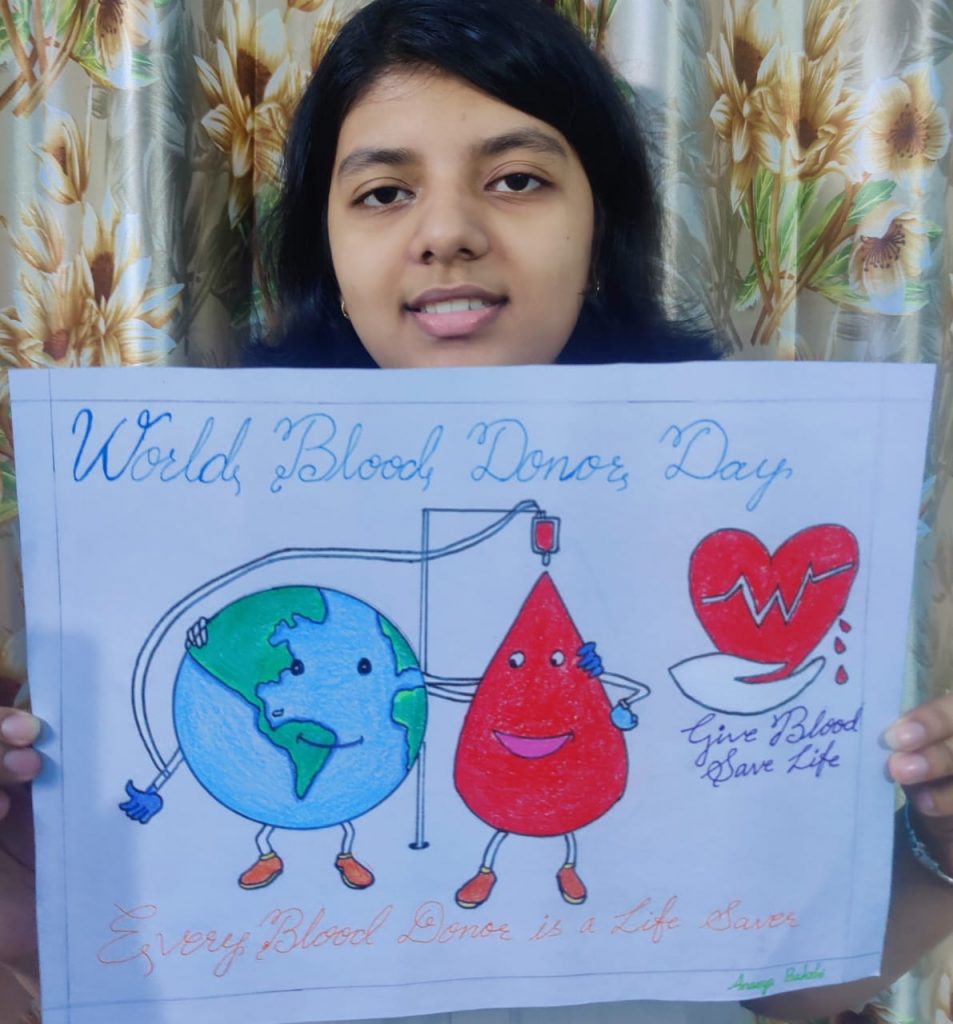 World Blood Donor Day
Give Blood
Save Life
Every Blood Donor is a Life Saver